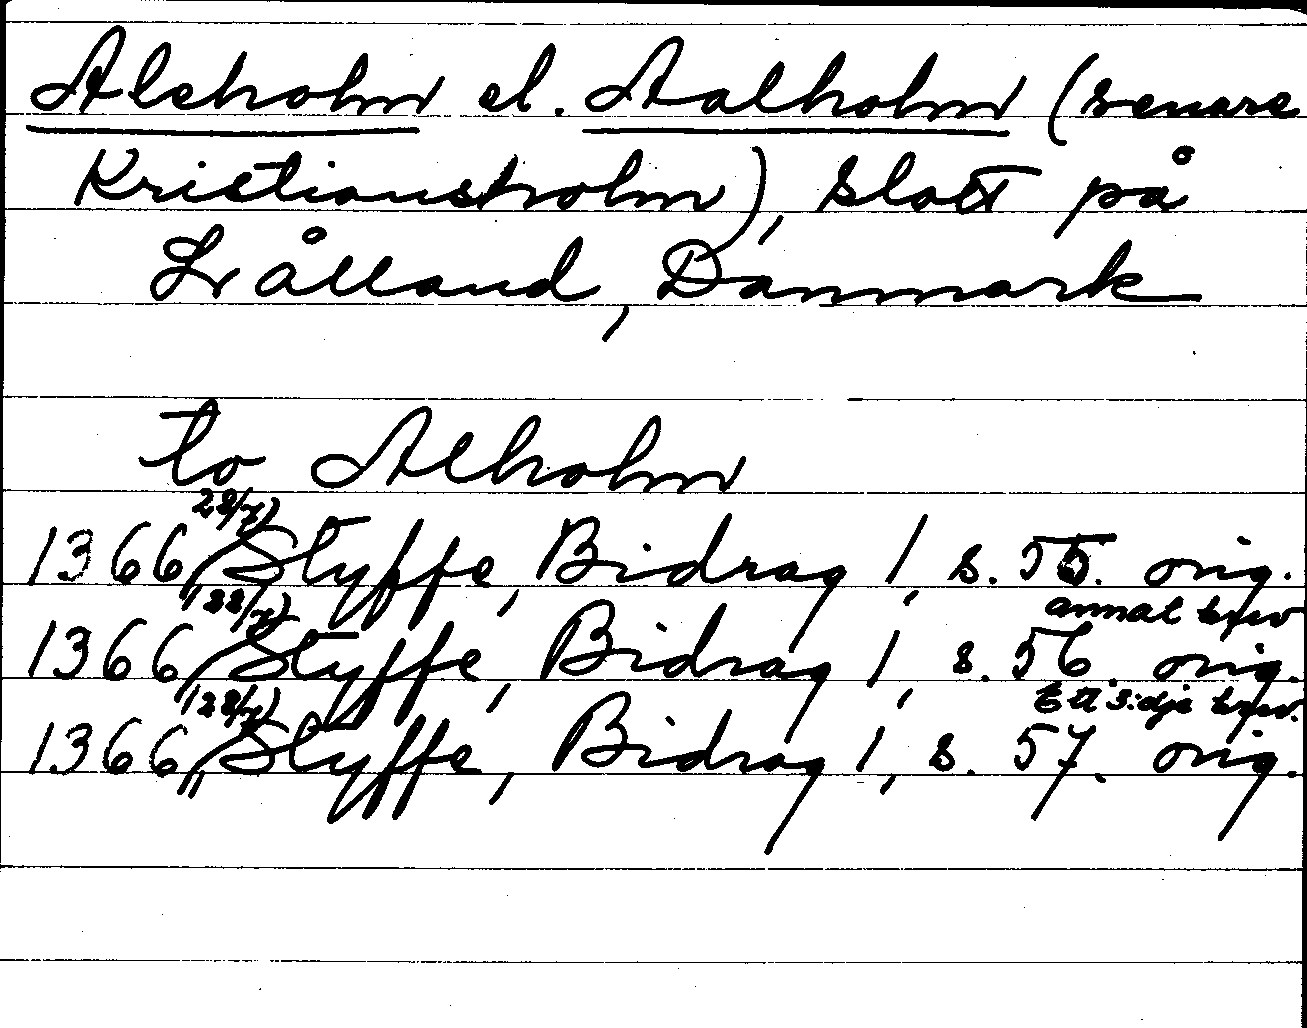 Aleholm el. Aalholm (senare
Kristiansholm), slott på
Låland, Danmark
to Alholm
1366 28/7, Styffe, Bidrag 1, s. 55. orig.
1366 (28/7), Styffe, Bidrag 1, s. 56. orig. annat brev
1366 (28/7), Styffe, Bidrag 1, s. 57. orig. Ett 3:dje brev.